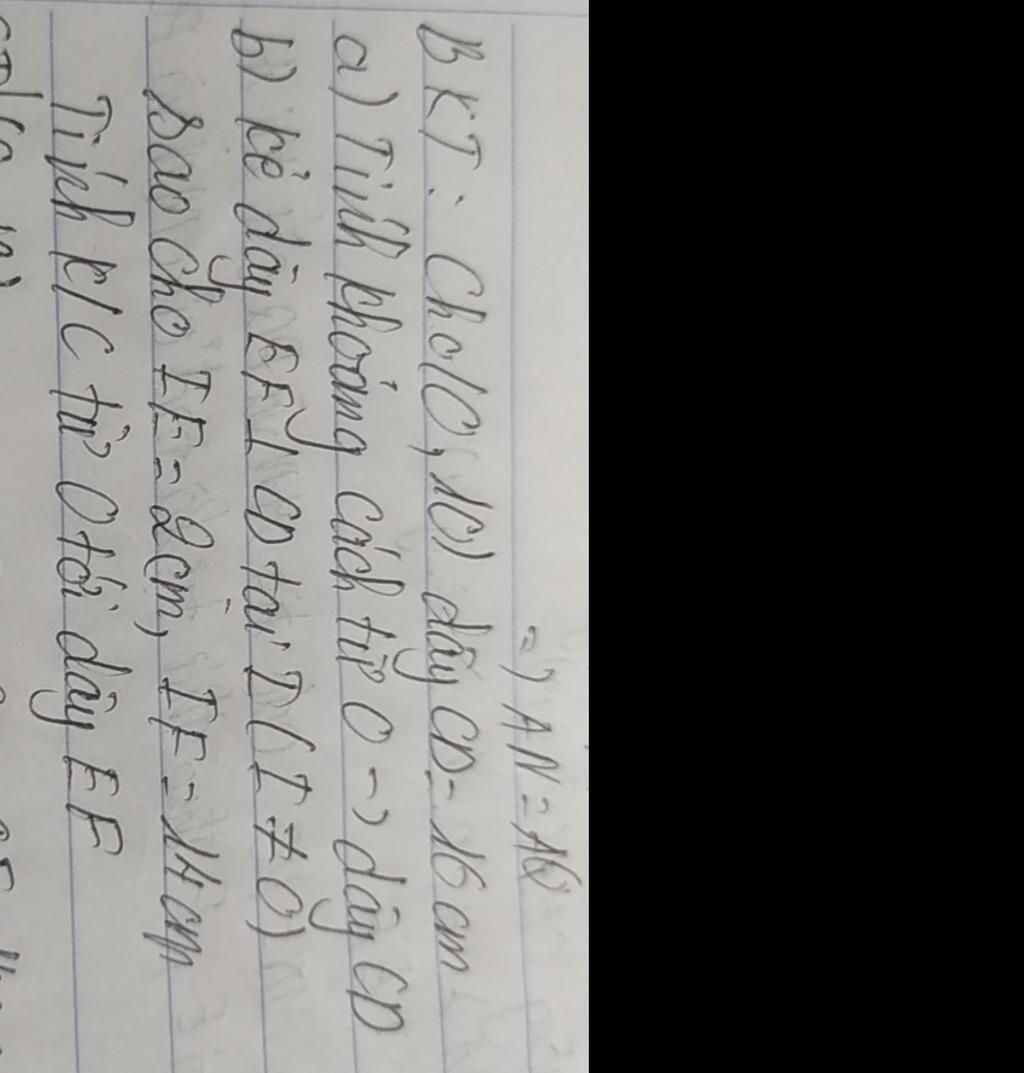 =) AN = AQ
BKT: Cho (O, 10) dây CD = 16 cm
a) Tính khoảng cách từ O -> dây CD
b) kẻ dây EF ⊥ CD tại I (I ≠ O)
sao cho IE = 2cm, IF = 14 cm
Tính k/c từ O tới dây EF